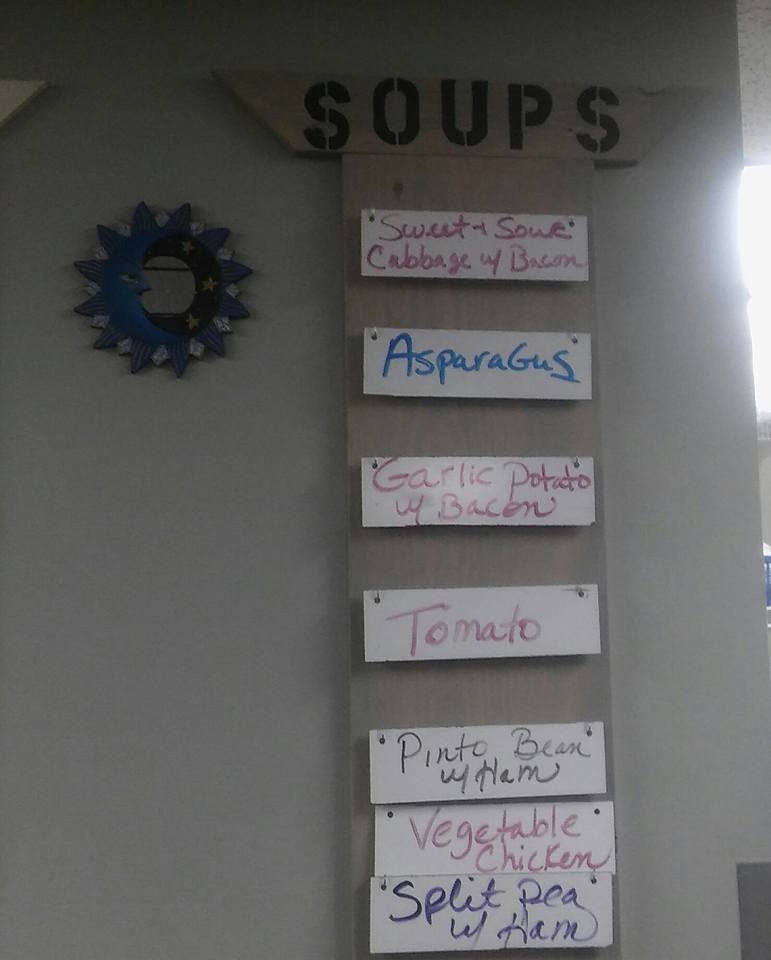 SOUPS
Sweet + Sour
Cabbage w/ Bacon
AsparaGus
Garlic Potato
w/ Bacon
Tomato
Pinto Bean
w/ Ham
Vegetable
Chicken
Split Pea
w/ Ham